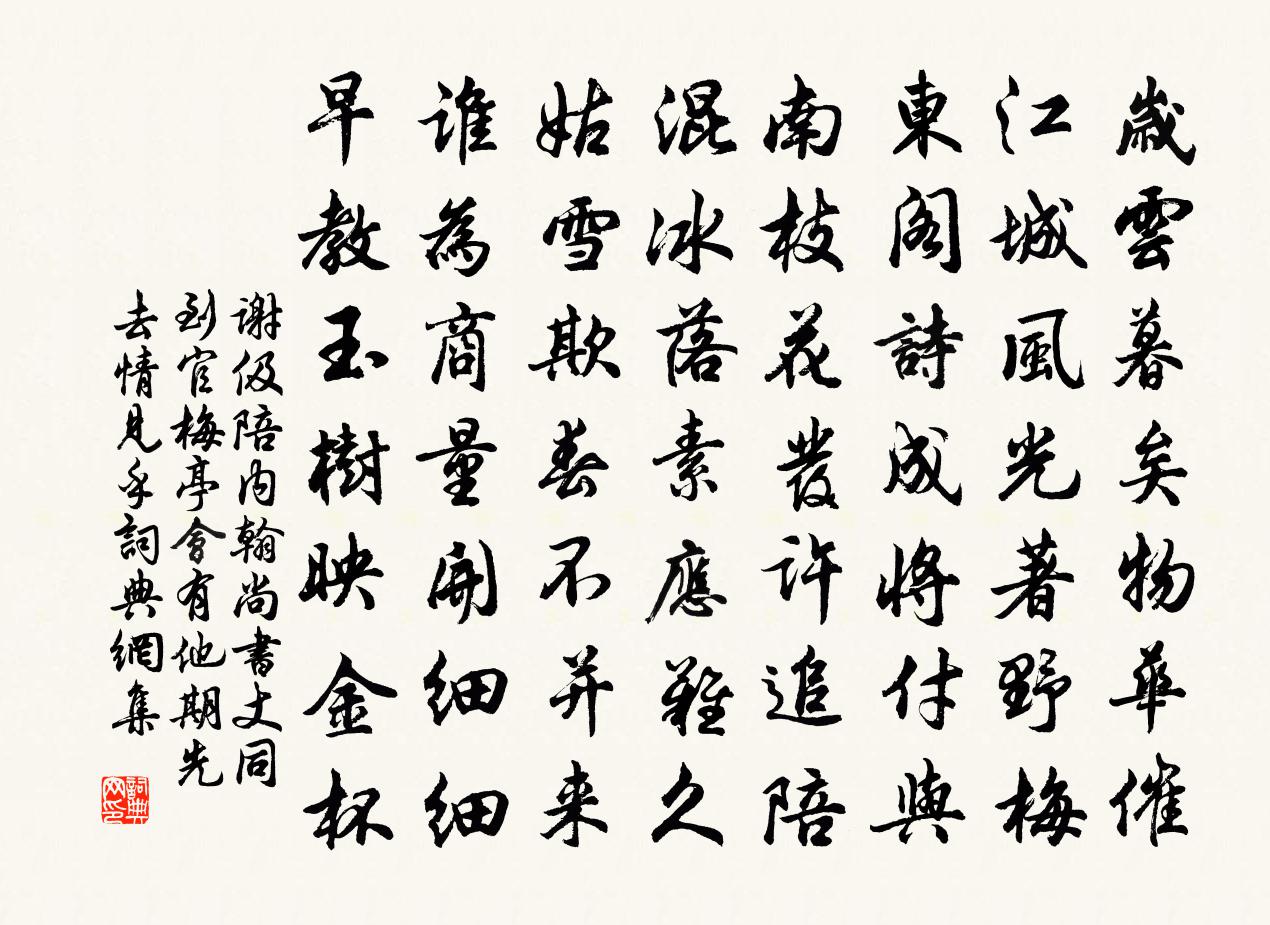 歲雲暮矣物華催
江城風光著野梅
東閣詩成將付與
南枝花發許追陪
混冰落素應難久
姑雪欺春不并来
誰為商量開細細
早教玉樹映金杯
謝伋陪内翰尚書丈同
到官梅亭會有他期先
去情見乎詞典網集
詞典網印